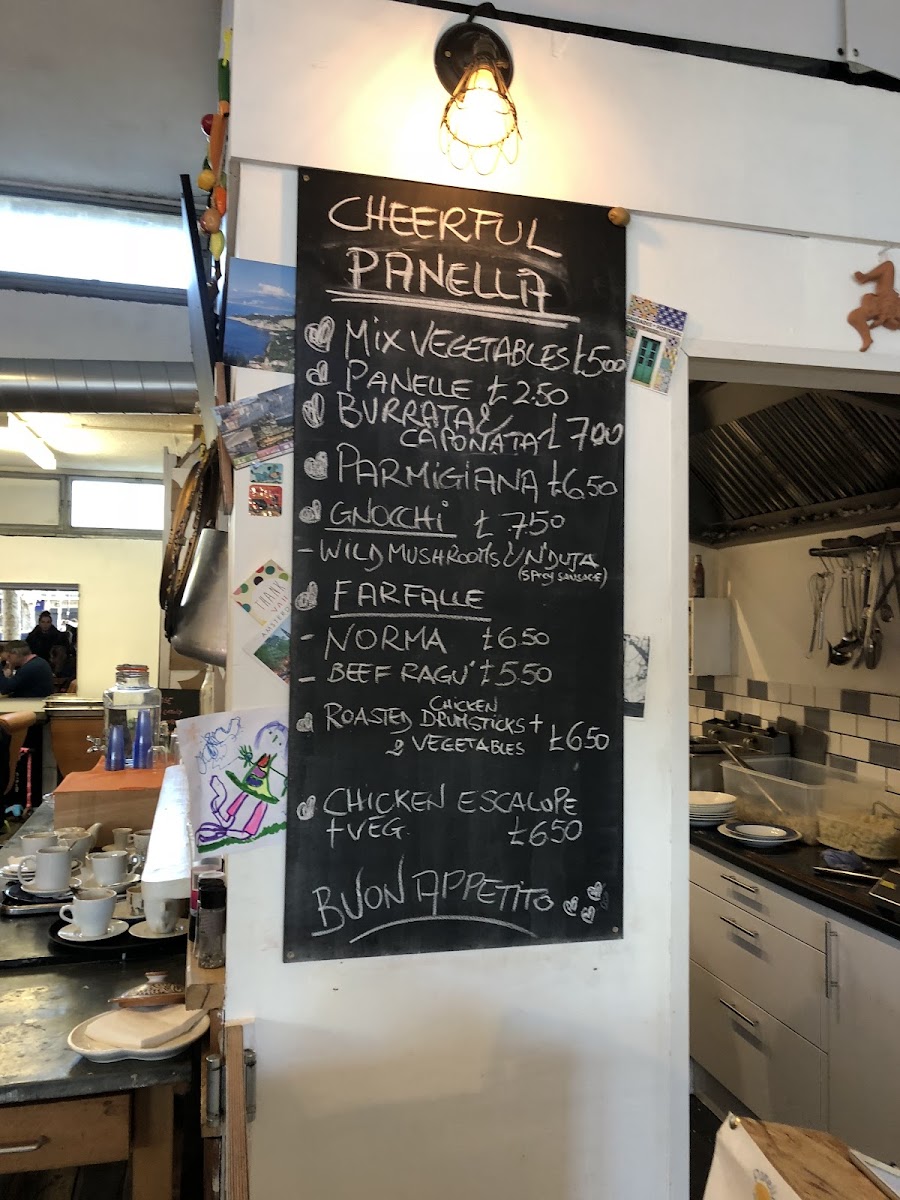 CHEERFUL
PANELLA
MIX VEGETABLES £500
PANELLE £2.50
BURRATA &
CAPONATA £700
PARMIGIANA £6.50
GNOCCHI £7.50
- WILD MUSHROOMS & N'DUJA
(SPICY SAUSAGE)
FARFALLE
- NORMA £6.50
- BEEF RAGU' £5.50
ROASTED CHICKEN
DRUMSTICKS +
& VEGETABLES £650
CHICKEN ESCALOPE
+ VEG. £650
BUON APPETITO
THANK
YOU